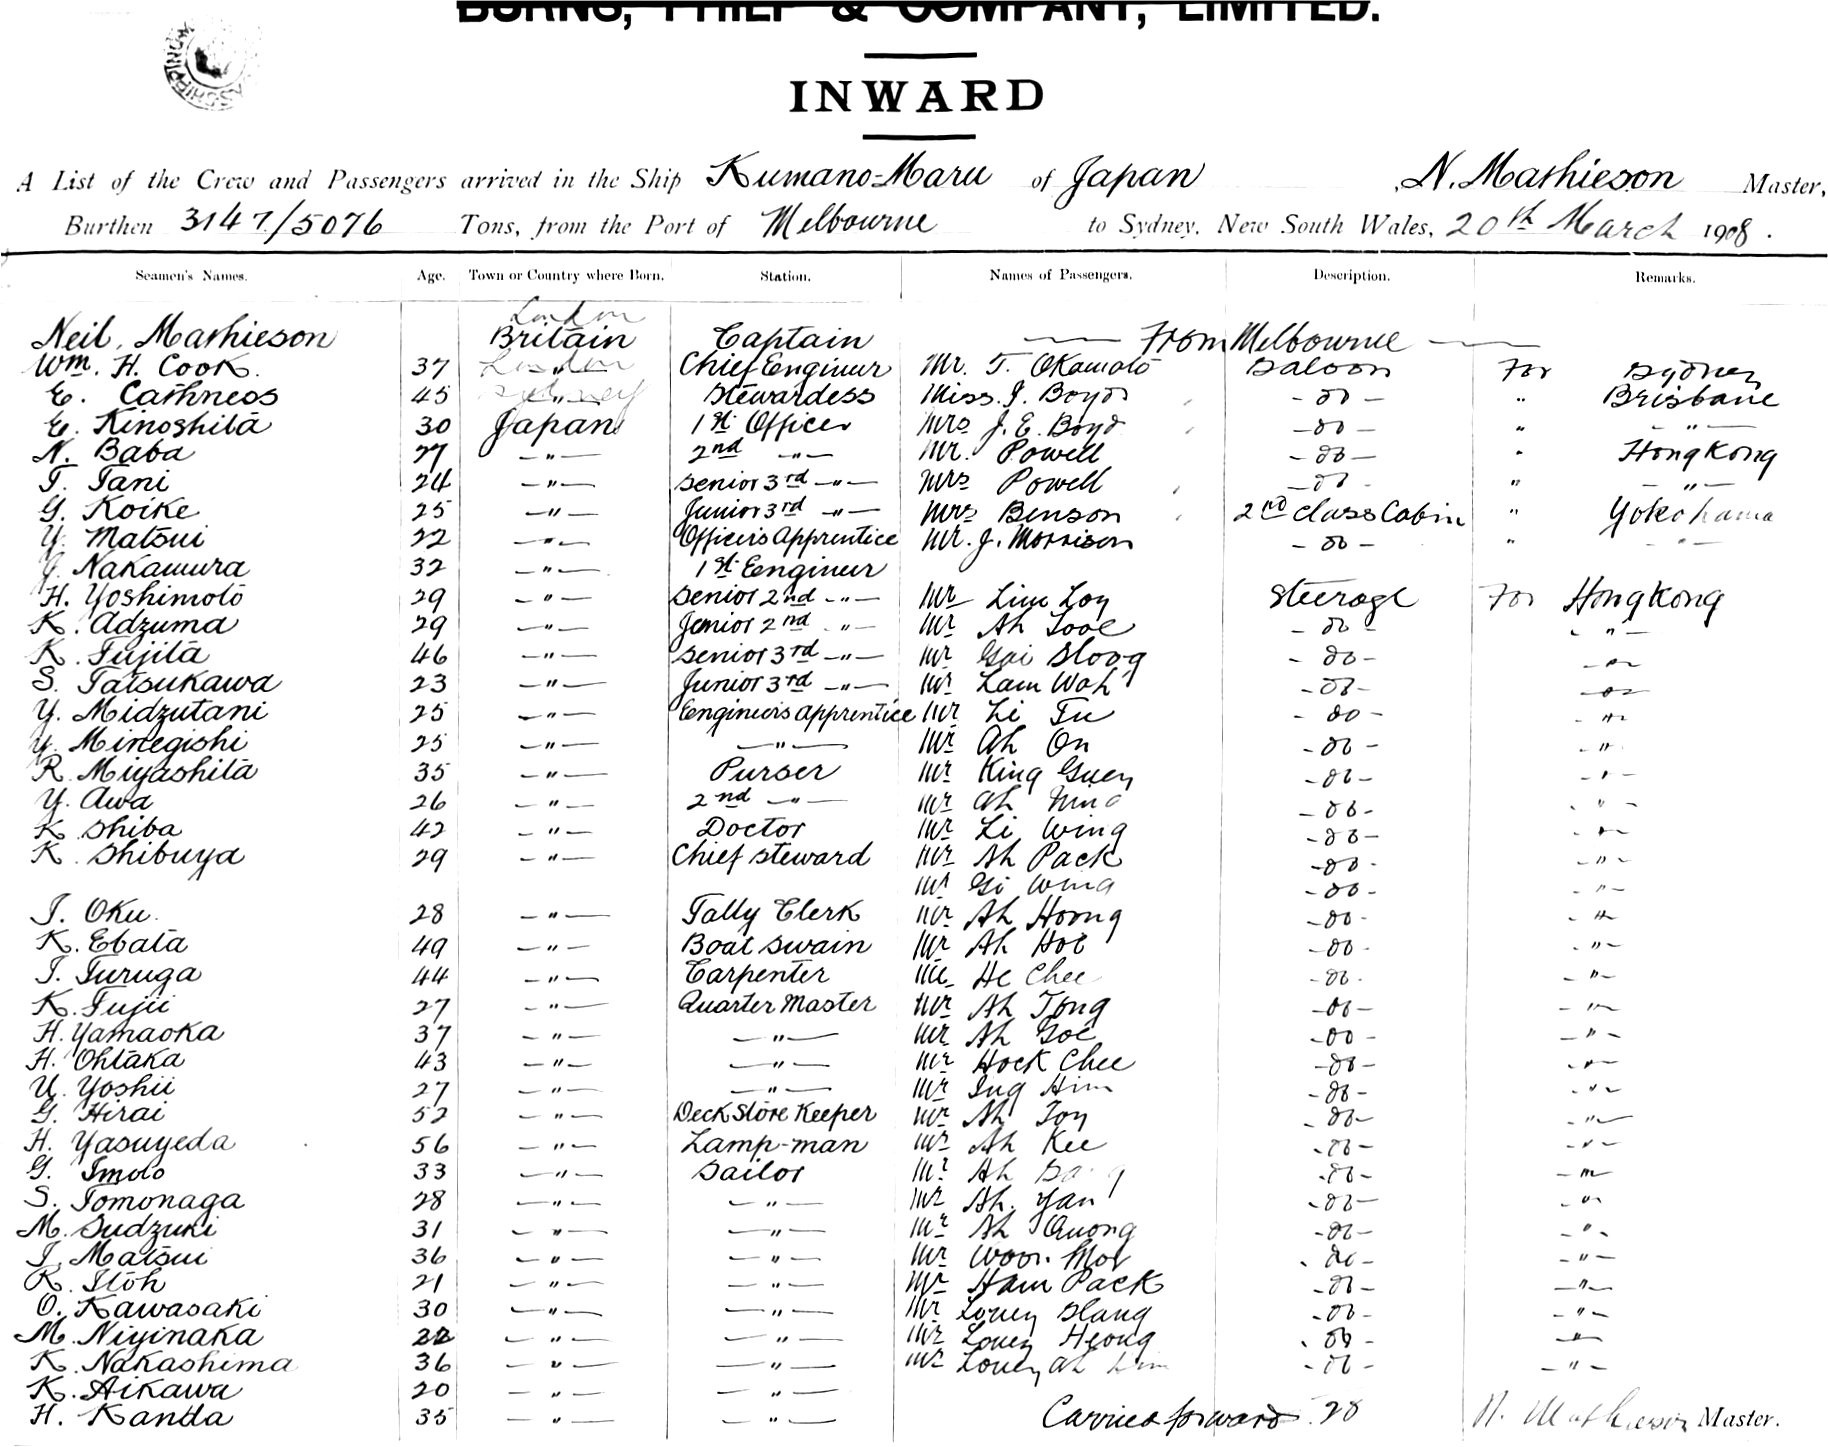 BURNS, PHILP & COMPANY, LIMITED.
INWARD
A List of the Crew and Passengers arrived in the Ship Kumano-Maru of Japan , N. Mathieson Master,
Burthen 3147/5076 Tons, from the Port of Melbourne to Sydney, New South Wales, 20th March 1908.
Seamen's Names. Age. Town or Country where Born. Station. Names of Passengers. Description. Remarks.
London
Neil Mathieson Britain Captain — From Melbourne —
Wm. H. Cook. 37 London Chief Engineer Mr. T. Okamoto Saloon For Sydney
E. Cathness 45 Sydney Stewardess Miss. J. Boyd - do - " Brisbane
E. Kinoshita 30 Japan 1st Officer Mrs J. E. Boyd - do - " - " -
N. Baba 27 - " - 2nd - " - Mr. Powell - do - " HongKong
T. Tani 24 - " - Senior 3rd - " - Mrs Powell - do - " - " -
G. Koike 25 - " - Junior 3rd - " - Mrs Benson 2nd class Cabin " Yokohama
Y. Matsui 22 - " - Officers Apprentice Mr. J. Morrison - do - " - " -
J. Nakamura 32 - " - 1st Engineer
H. Yoshimoto 29 - " - Senior 2nd - " - Mr Lim Loy Steerage For HongKong
K. Adzuma 29 - " - Junior 2nd - " - Mr Ah - do - - " -
K. Fujita 46 - " - Senior 3rd - " - Mr - do - - " -
S. Tatsukawa 23 - " - Junior 3rd - " - Mr Lam Wah - do - - " -
Y. Midzutani 25 - " - Engineers Apprentice Mr Li Fu - do - - " -
Y. Minegishi 25 - " - - " - Mr Ah On - do - - " -
R. Miyashita 35 - " - Purser Mr King Guey - do - - " -
Y. Awa 26 - " - 2nd - " - Mr Ah - do - - " -
K. Shiba 42 - " - Doctor Mr Li Wing - do - - " -
K. Shibuya 29 - " - Chief Steward Mr Ah Pack - do - - " -
Mr Gi Wing - do - - " -
J. Oku. 28 - " - Tally Clerk Mr Ah Hoong - do - - " -
K. Ebata 49 - " - Boat Swain Mr Ah Hoe - do - - " -
J. Turuga 44 - " - Carpenter Mr He Chee - do - - " -
K. Fujii 27 - " - Quarter Master Mr Ah Tong - do - - " -
H. Yamaoka 37 - " - - " - Mr Ah Goe - do - - " -
H. Ohtaka 43 - " - - " - Mr Hock Chee - do - - " -
U. Yoshii 27 - " - - " - Mr Ing Him - do - - " -
G. Hirai 52 - " - Deck Store Keeper Mr Ah Toy - do - - " -
H. Yasuyeda 56 - " - Lamp-man Mr Ah Kee - do - - " -
G. Imoto 33 - " - Sailor Mr Ah - do - - " -
S. Tomonaga 28 - " - - " - Mr Ah. Yan - do - - " -
M. Sudzuki 31 - " - - " - Mr Ah Quong - do - - " -
J. Matsui 36 - " - - " - Mr - do - - " -
K. Itoh 21 - " - - " - Mr Ham Pack - do - - " -
O. Kawasaki 30 - " - - " - Mr Louey Shang - do - - " -
M. Niyinaka 22 - " - - " - Mr Louey Heong - do - - " -
K. Nakashima 36 - " - - " - Mr Louey Ah - do - - " -
K. Aikawa 20 - " - - " -
H. Kanda 35 - " - - " - Carried forward. 28 N. Mathieson Master.